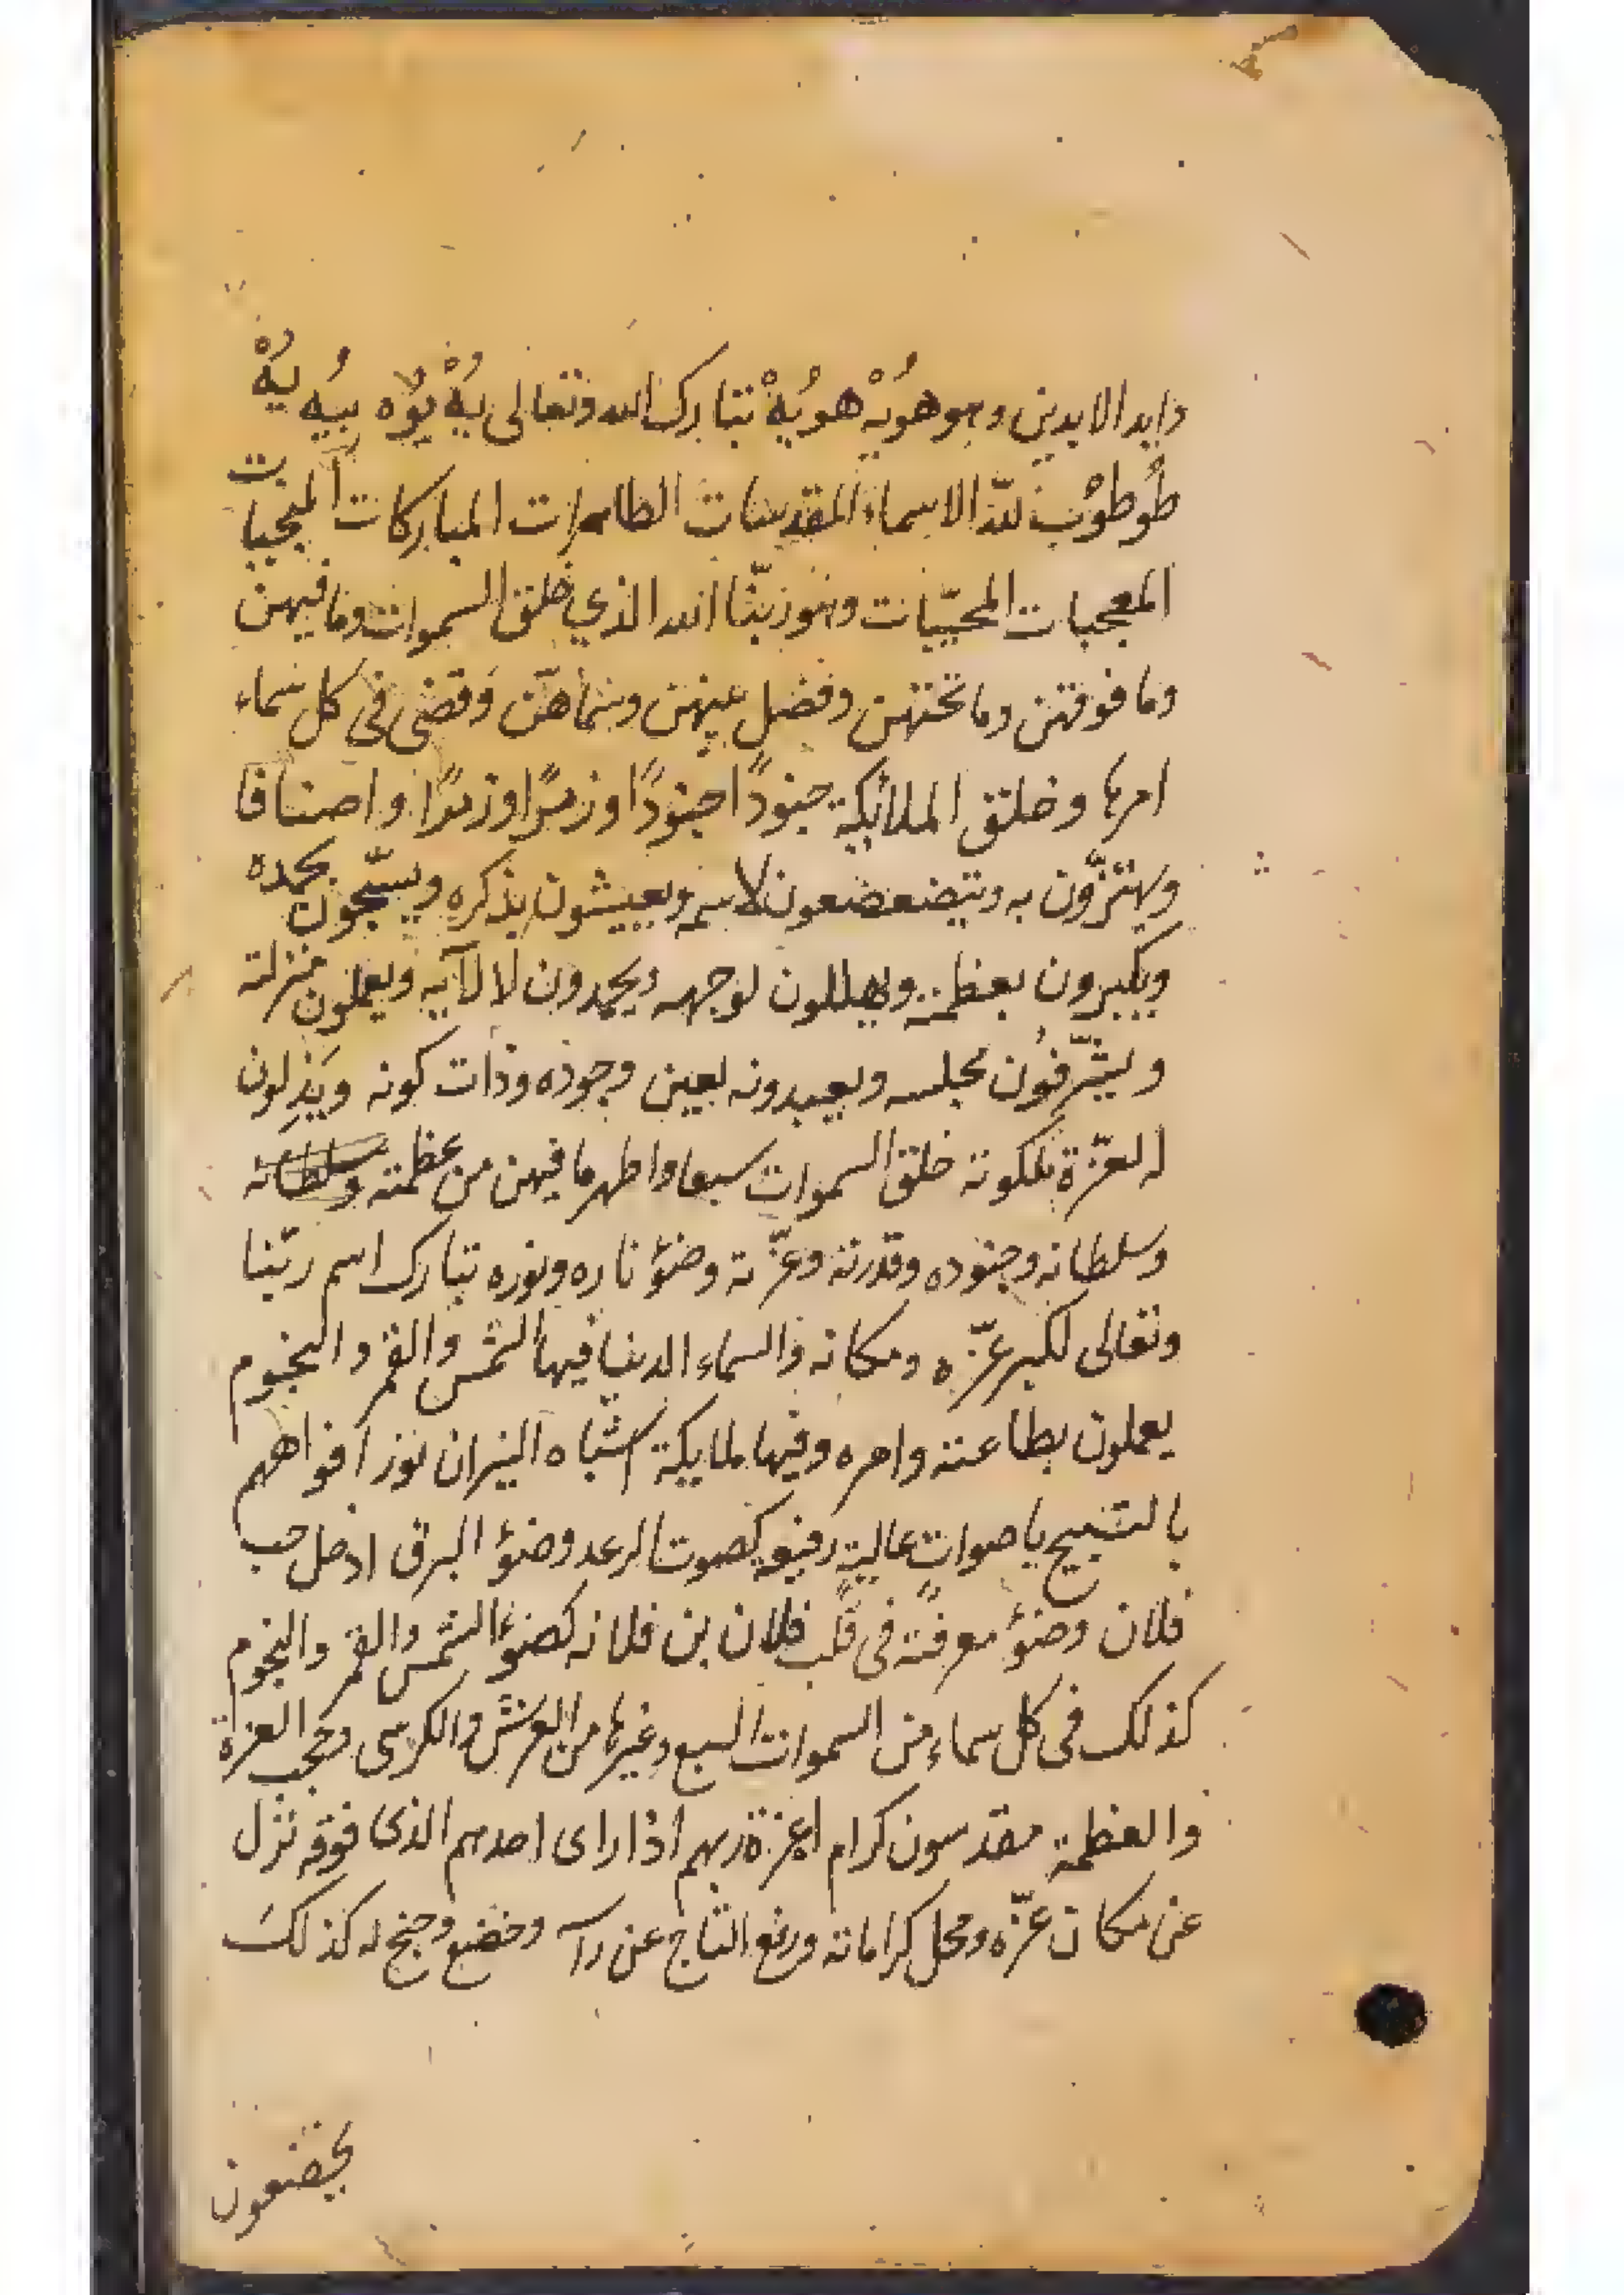 وابد الابدين وهو هويه هويه تبارك الله وتعالى يه يوه بيه يه
طوطوب لله الاسماء المقدسات الطاهرات المباركات المنجيات
المعجبات المحييات وهو ربنا الله الذي خلق السموات وما فيهن
وما فوقهن وما تحتهن وفضل بينهن وسماهن وقضى فى كل سماء
امرها وخلق الملائكة جنودًا جنودًا وزمرًا وزمرًا واصنافا
ويهتزّون به ويتضعضعون لاسمه ويعيشون بذكره ويسبّحون بحمده
ويكبرون بعظمته ويهللون لوجهه ويحمدون لالآيه ويعملون منزلته
ويشرّفون مجلسه ويعبدونه بعين وجوده وذات كونه ويذلون
له العزّة بملكوته خلق السموات سبعا واظهر ما فيهن من عظمته وسلطانه
وسلطانه وجنوده وقدرته وعزّته وضؤ ناره ونوره تبارك اسم ربّنا
وتعالى لكبر عزّه ومكانه والسماء الدنيا فيها الشمس والقمر والنجوم
يعملون بطاعته وامره وفيها ملايكة اشباه النيران نور افواههم
بالتسبيح باصوات عالية رفيعة كصوت الرعد وضؤ البرق ادخل حب
فلان وضؤ معرفته فى قلب فلان بن فلانه كضؤ الشمس والقمر والنجوم
كذلك فى كل سماء من السموات السبع وغيرها من العرش والكرسى وحجب العزة
والعظمة مقدسون كرام اعزة ربهم اذا راى احدهم الذى فوقه نزل
عن مكان عزّه ومحل كراماته ورفع التاج عن راسه وخضع وجنح له كذلك
يخضعون